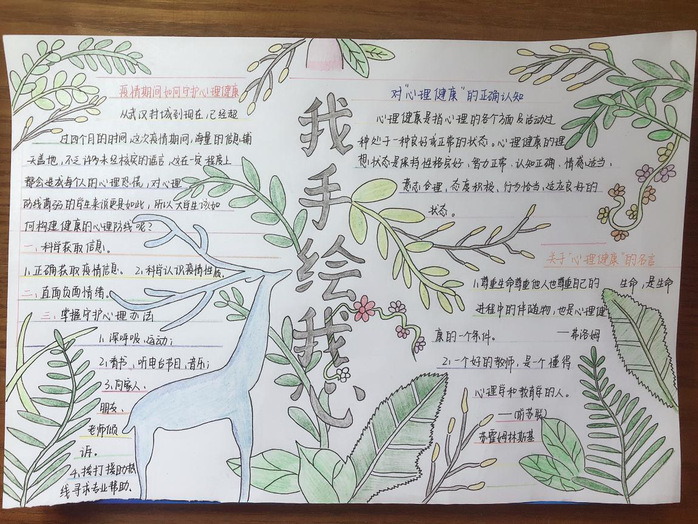 疫情期间如何守护心理健康
从武汉封城到现在,已经超
过四个月的时间,这次疫情期间,海量的信息铺
天盖地,不乏许多未经核实的谣言,这在一定程度上
都会造成每个人的心理恐慌,对心理
防线薄弱的学生来说更是如此,所以大学生该如
何构理健康的心理防线呢?
一、科学获取信息。
1.正确获取疫情信息、2.科学认识疫情性质、
二、直面负面情绪。
三、掌握守护心理办法
1、深呼吸、运动;
2、看书、听电台节目、音乐;
3、向家人、
朋友、
老师倾
诉。
4、拨打援助热
线寻求专业帮助、
我手绘我心
对“心理健康”的正确认知
心理健康是指心理的各个方面及活动过
程处于一种良好或正常的状态。心理健康的理
想状态是保持性格完好、智力正常、认知正确、情感适当、
意志合理、态度积极、行为恰当、适应良好的
状态。
关于“心理健康”的名言
1、尊重生命尊重他人也尊重自己的 生命,是生命
进程中的伴随物,也是心理健
康的一个条件。 ——弗洛姆
2、一个好的教师,是一个懂得
心理学和教育学的人。
——(前苏联)
苏霍姆林斯基